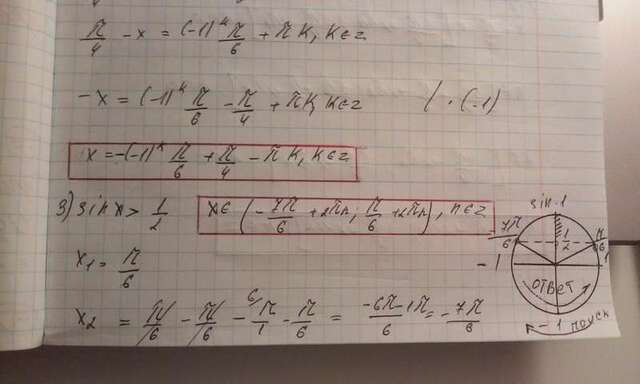 π/4 - x = (-1)^k π/6 + πk, k∈z
-x = (-1)^k π/6 - π/4 + πk, k∈z / · (-1)
x = -(-1)^k π/6 + π/4 - πk, k∈z
3) sin x > 1/2 x∈ (-7π/6 + 2πn; π/6 + 2πn), n∈z
x₁ = π/6
x₂ = π/6 - π/6 - π/1 - π/6 = -6π-1π/6 = -7π/6
sin 1
-7π/6 1/2 π/6
-1 1
ответ
-1 поиск